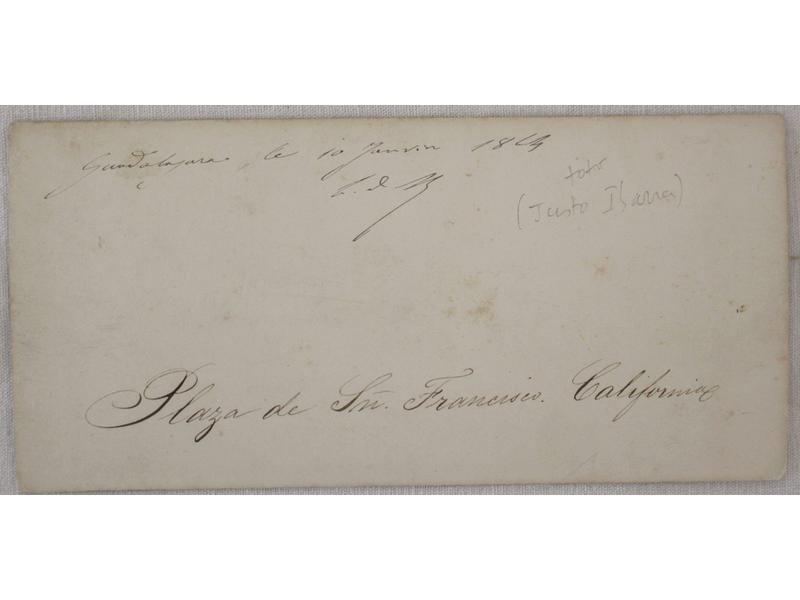 Guadalajara, le 10 Janvier 1864
foto
(Justo Ibarra)
Plaza de Sn. Francisco. California